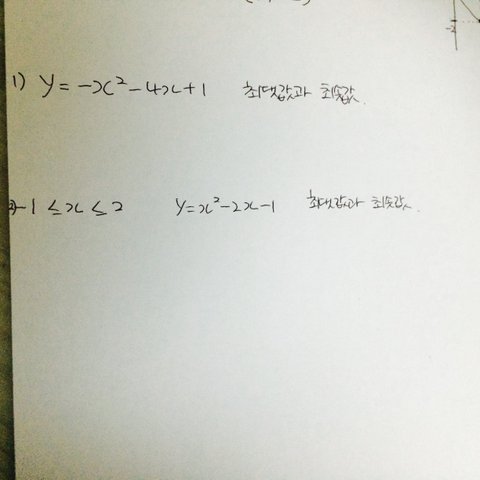 1) y = -x² - 4x + 1 최댓값과 최솟값.
2) -1 ≤ x ≤ 2 y = x² - 2x - 1 최댓값과 최솟값.
-2